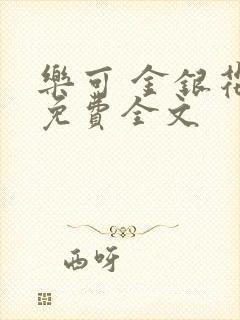 樂可 金銀花
免費全文
西呀